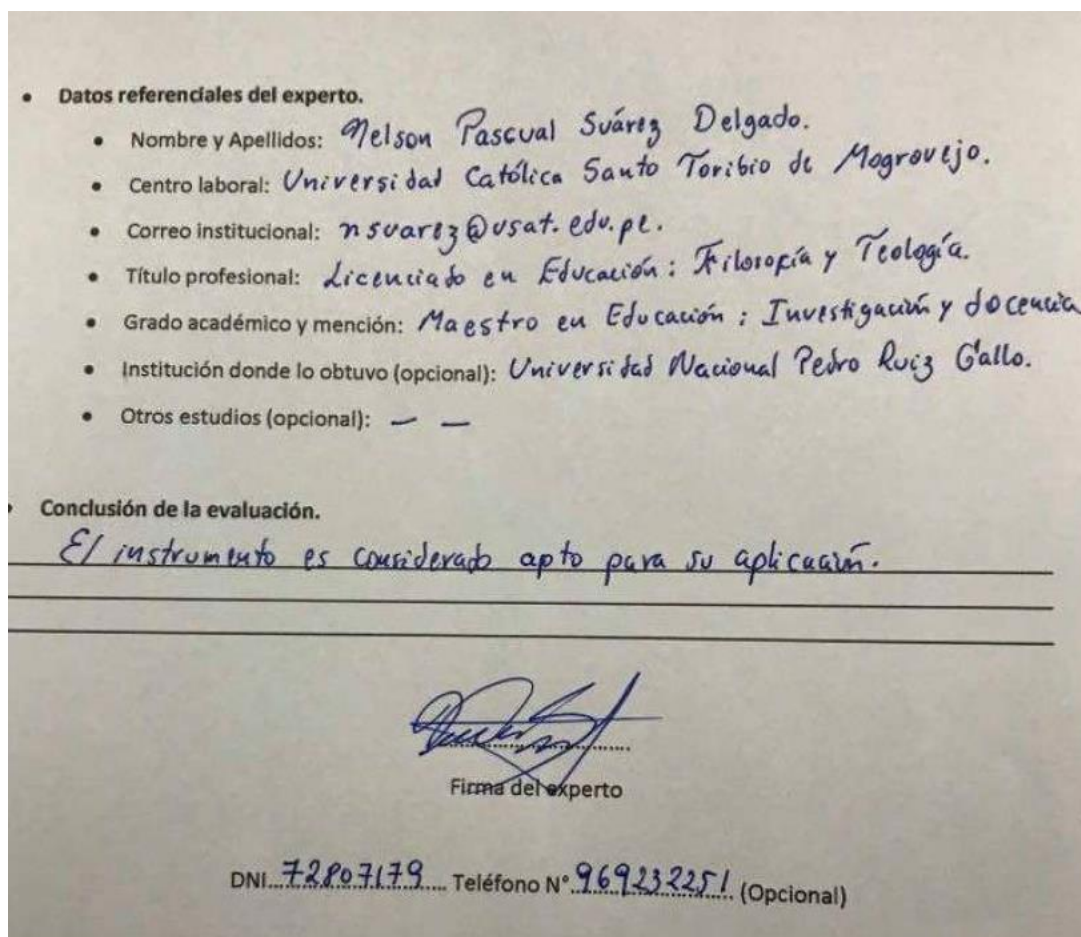 • Datos referenciales del experto.
• Nombre y Apellidos: Nelson Pascual Suárez Delgado.
• Centro laboral: Universidad Católica Santo Toribio de Mogrovejo.
• Correo institucional: nsuarez@usat.edu.pe.
• Título profesional: Licenciado en Educación: Filosofía y Teología.
• Grado académico y mención: Maestro en Educación: Investigación y docencia
• Institución donde lo obtuvo (opcional): Universidad Nacional Pedro Ruiz Gallo.
• Otros estudios (opcional): — —
• Conclusión de la evaluación.
El instrumento es considerado apto para su aplicación.
Firma del experto
DNI 72807179 Teléfono N° 969232251 (Opcional)